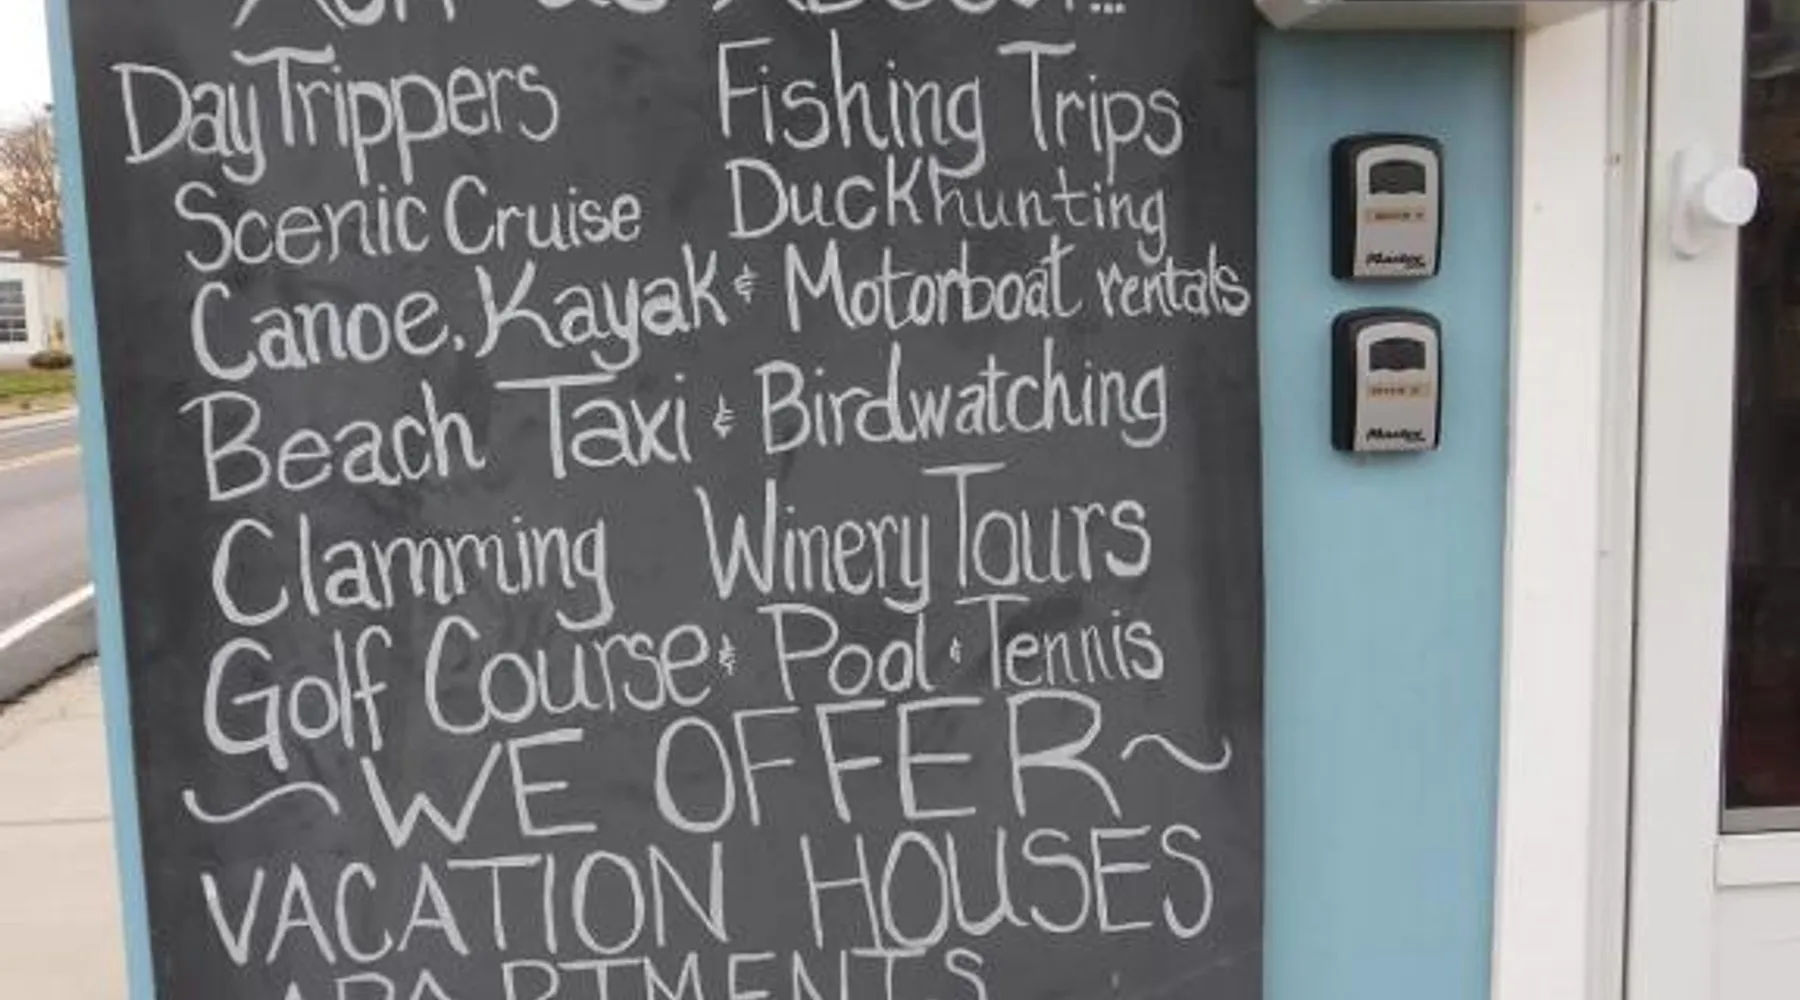 ASK US ABOUT...
Day Trippers Fishing Trips
Scenic Cruise Duckhunting
Canoe, Kayak & Motorboat rentals
Beach Taxi & Birdwatching
Clamming Winery Tours
Golf Course & Pool & Tennis
~ WE OFFER ~
VACATION HOUSES
APARTMENTS
Master
Master